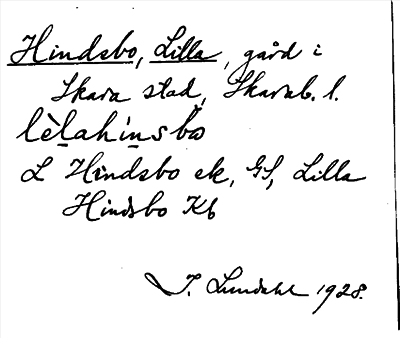 Hindsbo, Lilla, gård i
Skara stad, Skarab. l.
lèḻahi̱ṉsbo
L Hindsbo ek, GS, Lilla
Hindsbo Kb
I. Lundahl 1928.